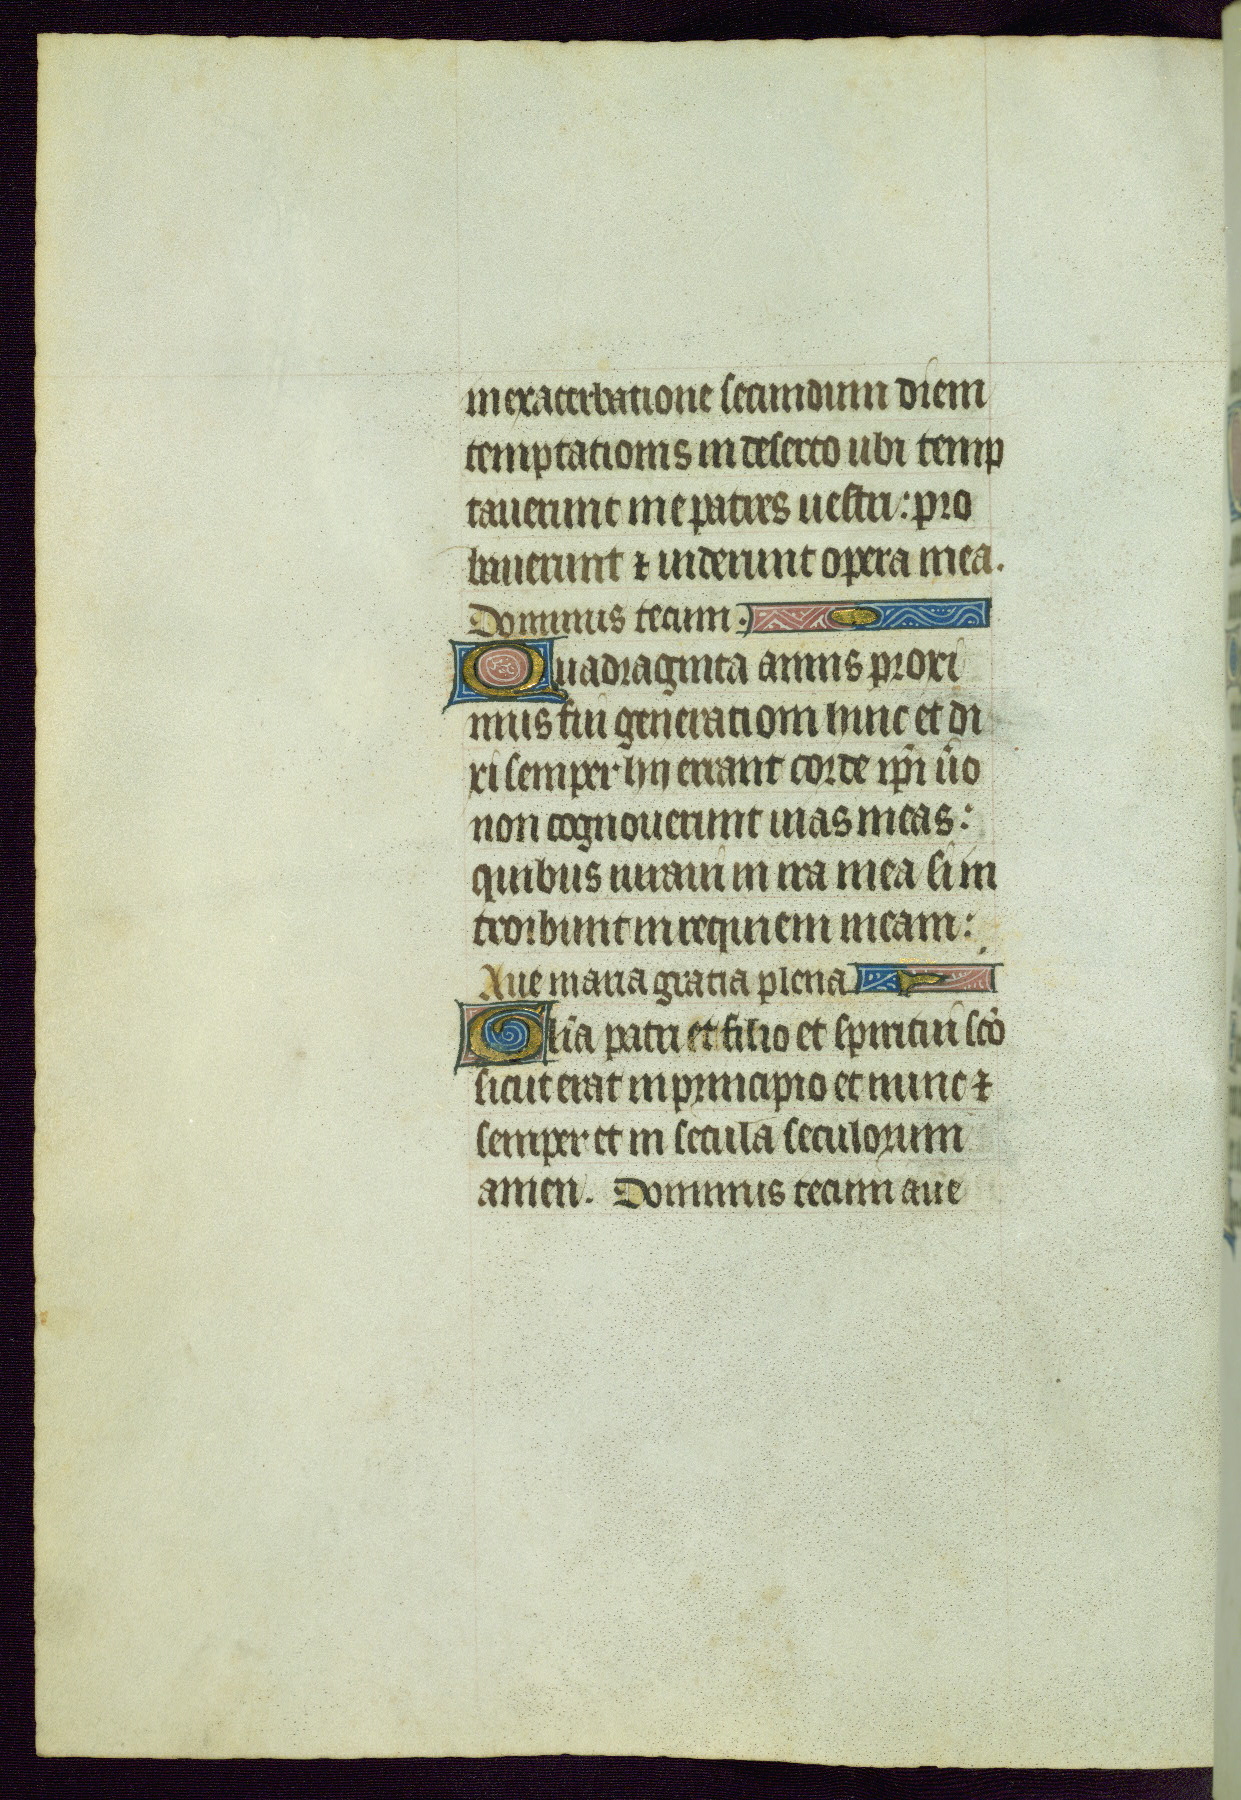 in exacerbatione secundum diem
temptationis in deserto ubi temp
tauerunt me patres uestri : pro
bauerunt ⁊ uiderunt opera mea.
Dominus tecum.
Quadraginta annis proxi
mus fui generationi huic et di
xi semper hii errant corde ip̄i ūo
non cognouerunt uias meas :
quibus iuraui in ira mea si in
troibunt in requiem meam :
Aue maria gratia plena
Glīa patri et filio et spiritui sc̄o
sicut erat in principio et nunc ⁊
semper et in secula seculorum
amen. Dominus tecum aue